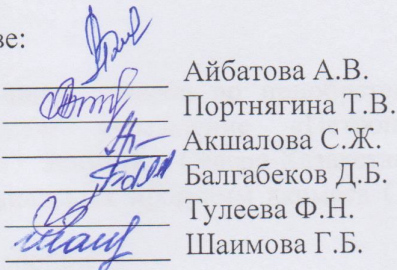 ве:
Айбатова А.В.
Портнягина Т.В.
Акшалова С.Ж.
Балгабеков Д.Б.
Тулеева Ф.Н.
Шаимова Г.Б.